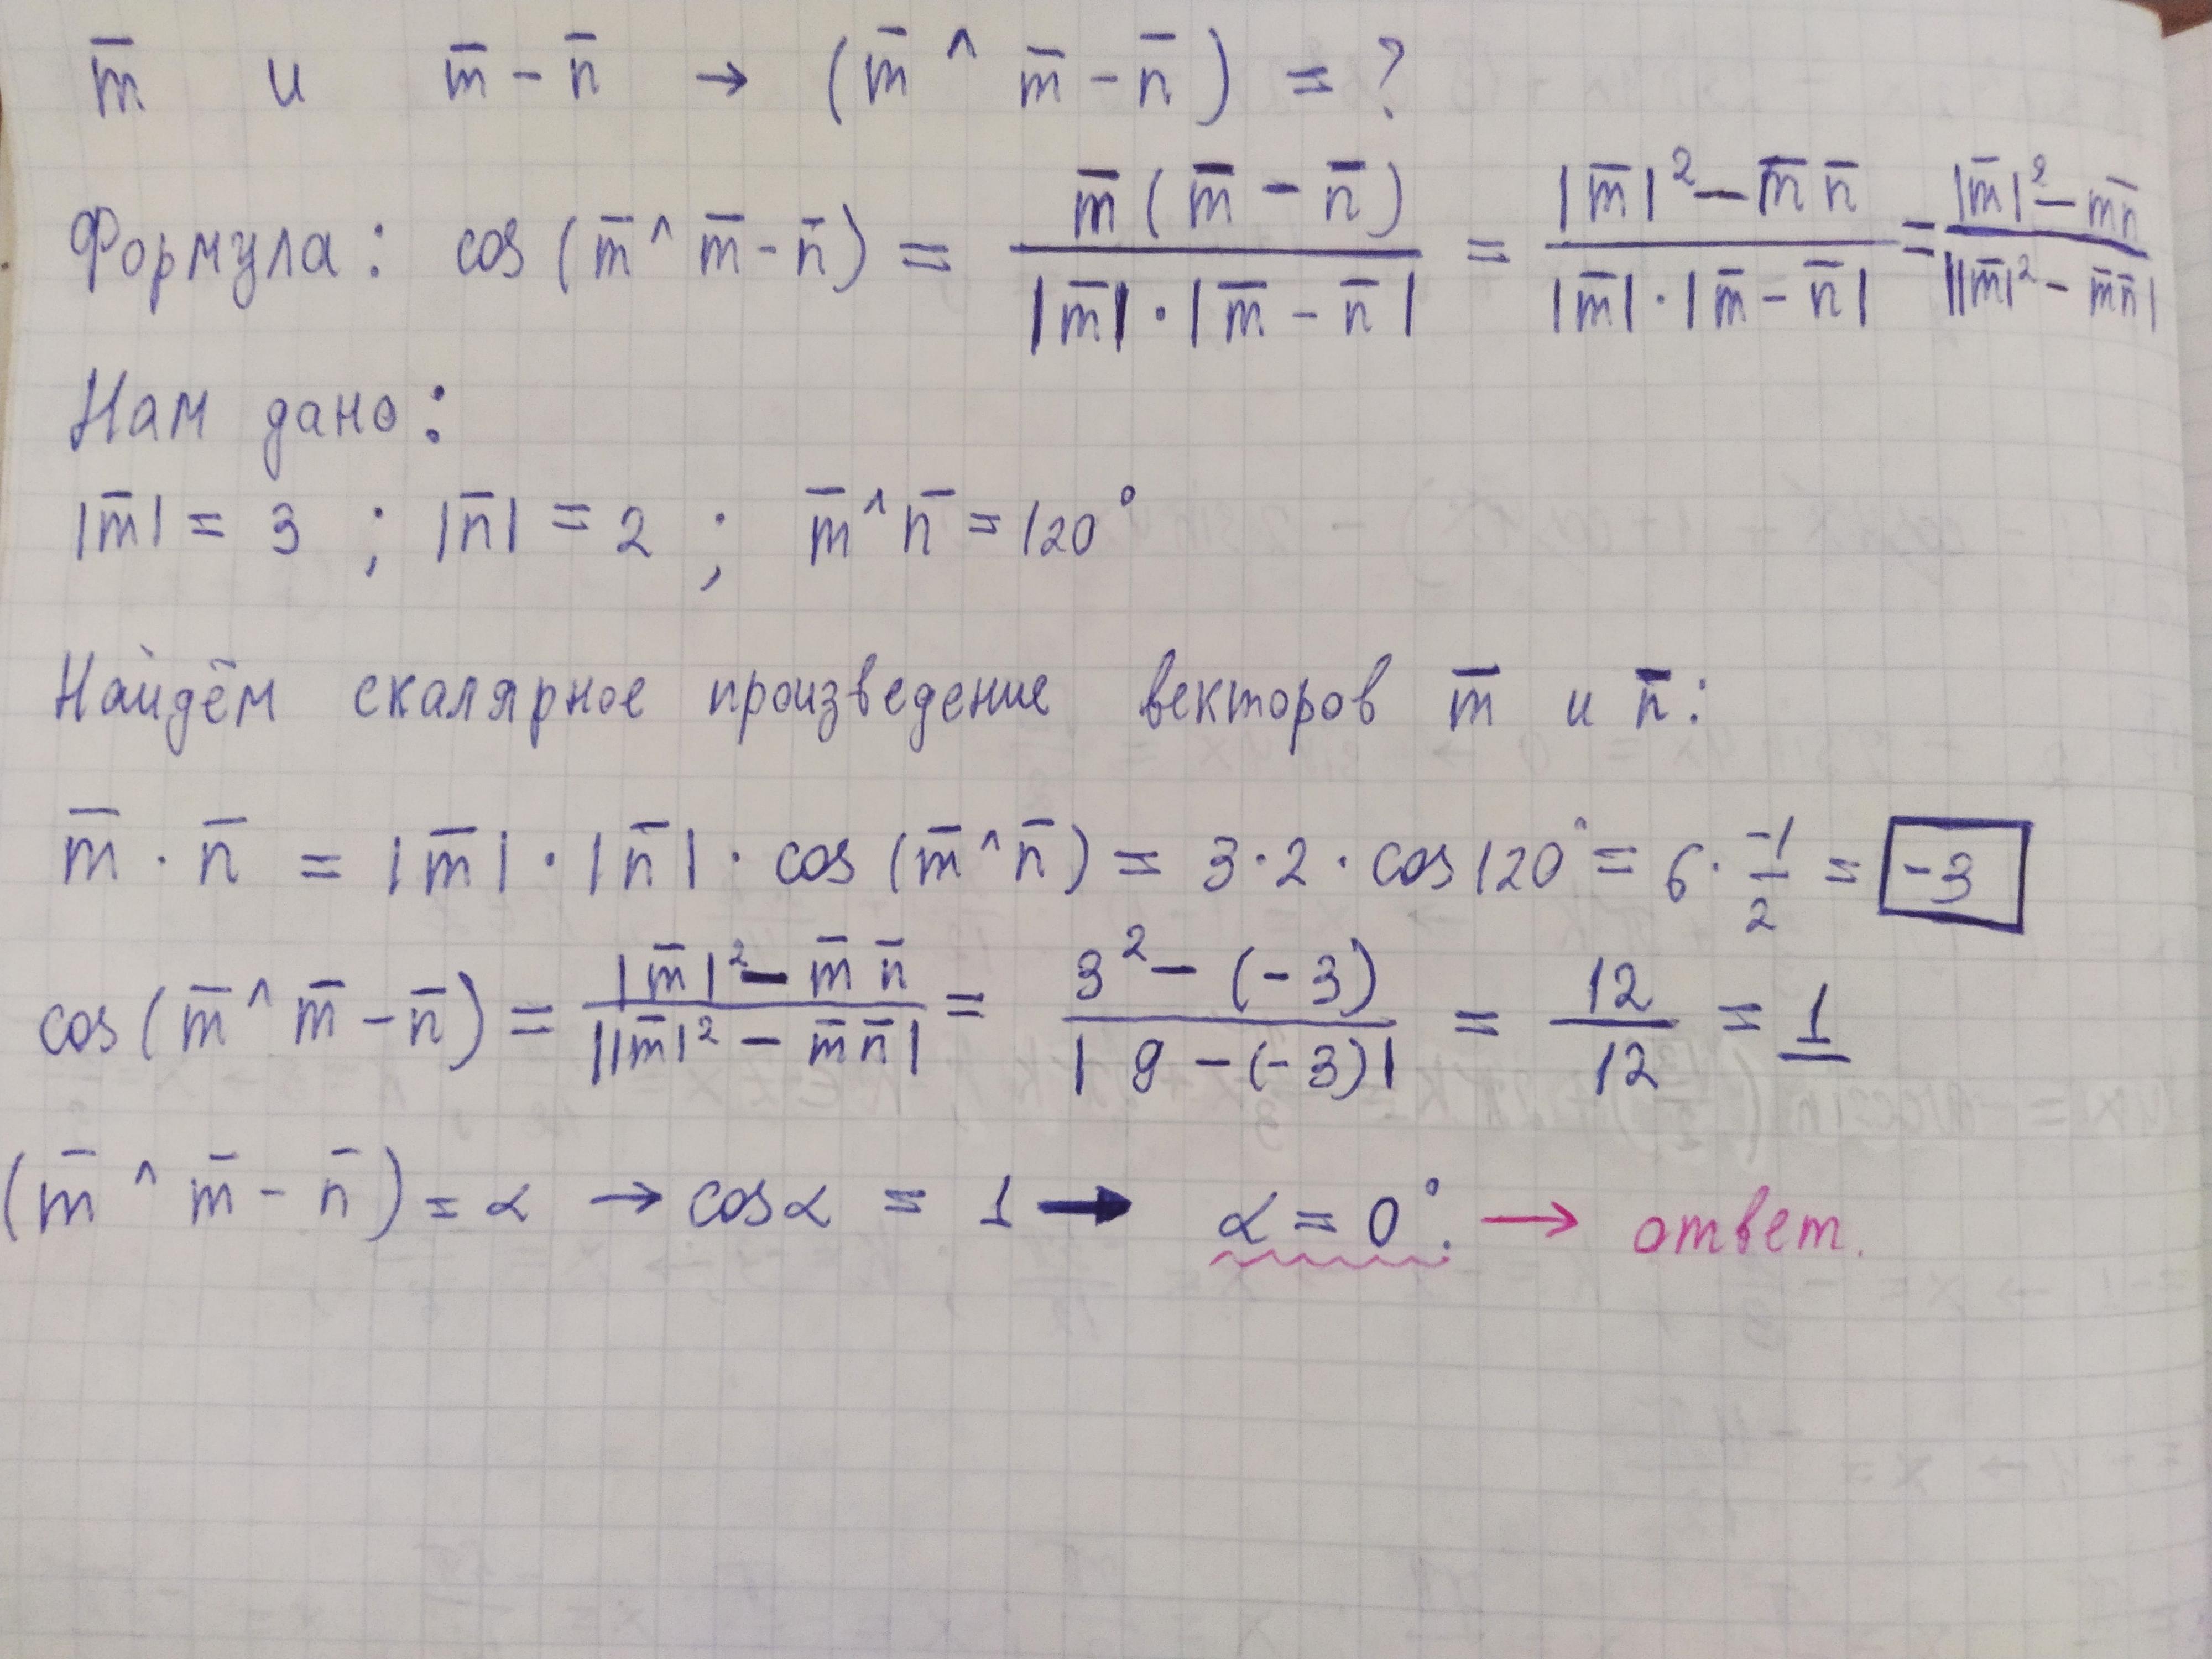 m̅ и m̅ - n̅ → (m̅ ^ m̅ - n̅) = ?
Формула: cos (m̅ ^ m̅ - n̅) = m̅ (m̅ - n̅) / |m̅| · |m̅ - n̅| = |m̅|² - m̅ n̅ / |m̅| · |m̅ - n̅| = |m̅|² - mn̅ / ||m̅|² - m̅n̅|
Нам дано:
|m̅| = 3 ; |n̅| = 2 ; m̅ ^ n̅ = 120°
Найдём скалярное произведение векторов m̅ и n̅:
m̅ · n̅ = |m̅| · |n̅| · cos (m̅ ^ n̅) = 3 · 2 · cos 120° = 6 · -1/2 = -3
cos (m̅ ^ m̅ - n̅) = |m̅|² - m̅ n̅ / ||m̅|² - m̅ n̅| = 3² - (-3) / |9 - (-3)| = 12/12 = 1
(m̅ ^ m̅ - n̅) = α → cos α = 1 → α = 0°. → ответ.